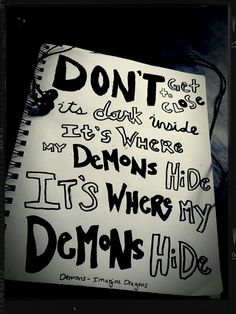 DON'T GET
to CLOSE
its dark inside
It's Where
MY DEMONS HiDE
IT'S WHERE MY
DEMONS HiDE
Demons - Imagine Dragons